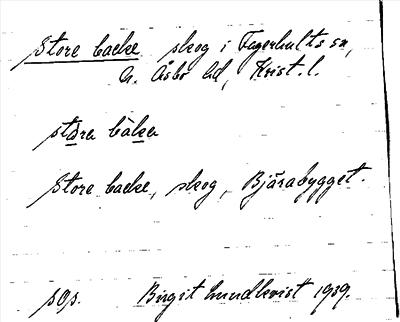 Store backe skog i Fagerhults sn,
N. Åsbo hd, Krist. l.
stora bàka
Store backe, skog, Bjärabygget.
sOs. Birgit Lundkvist 1939.